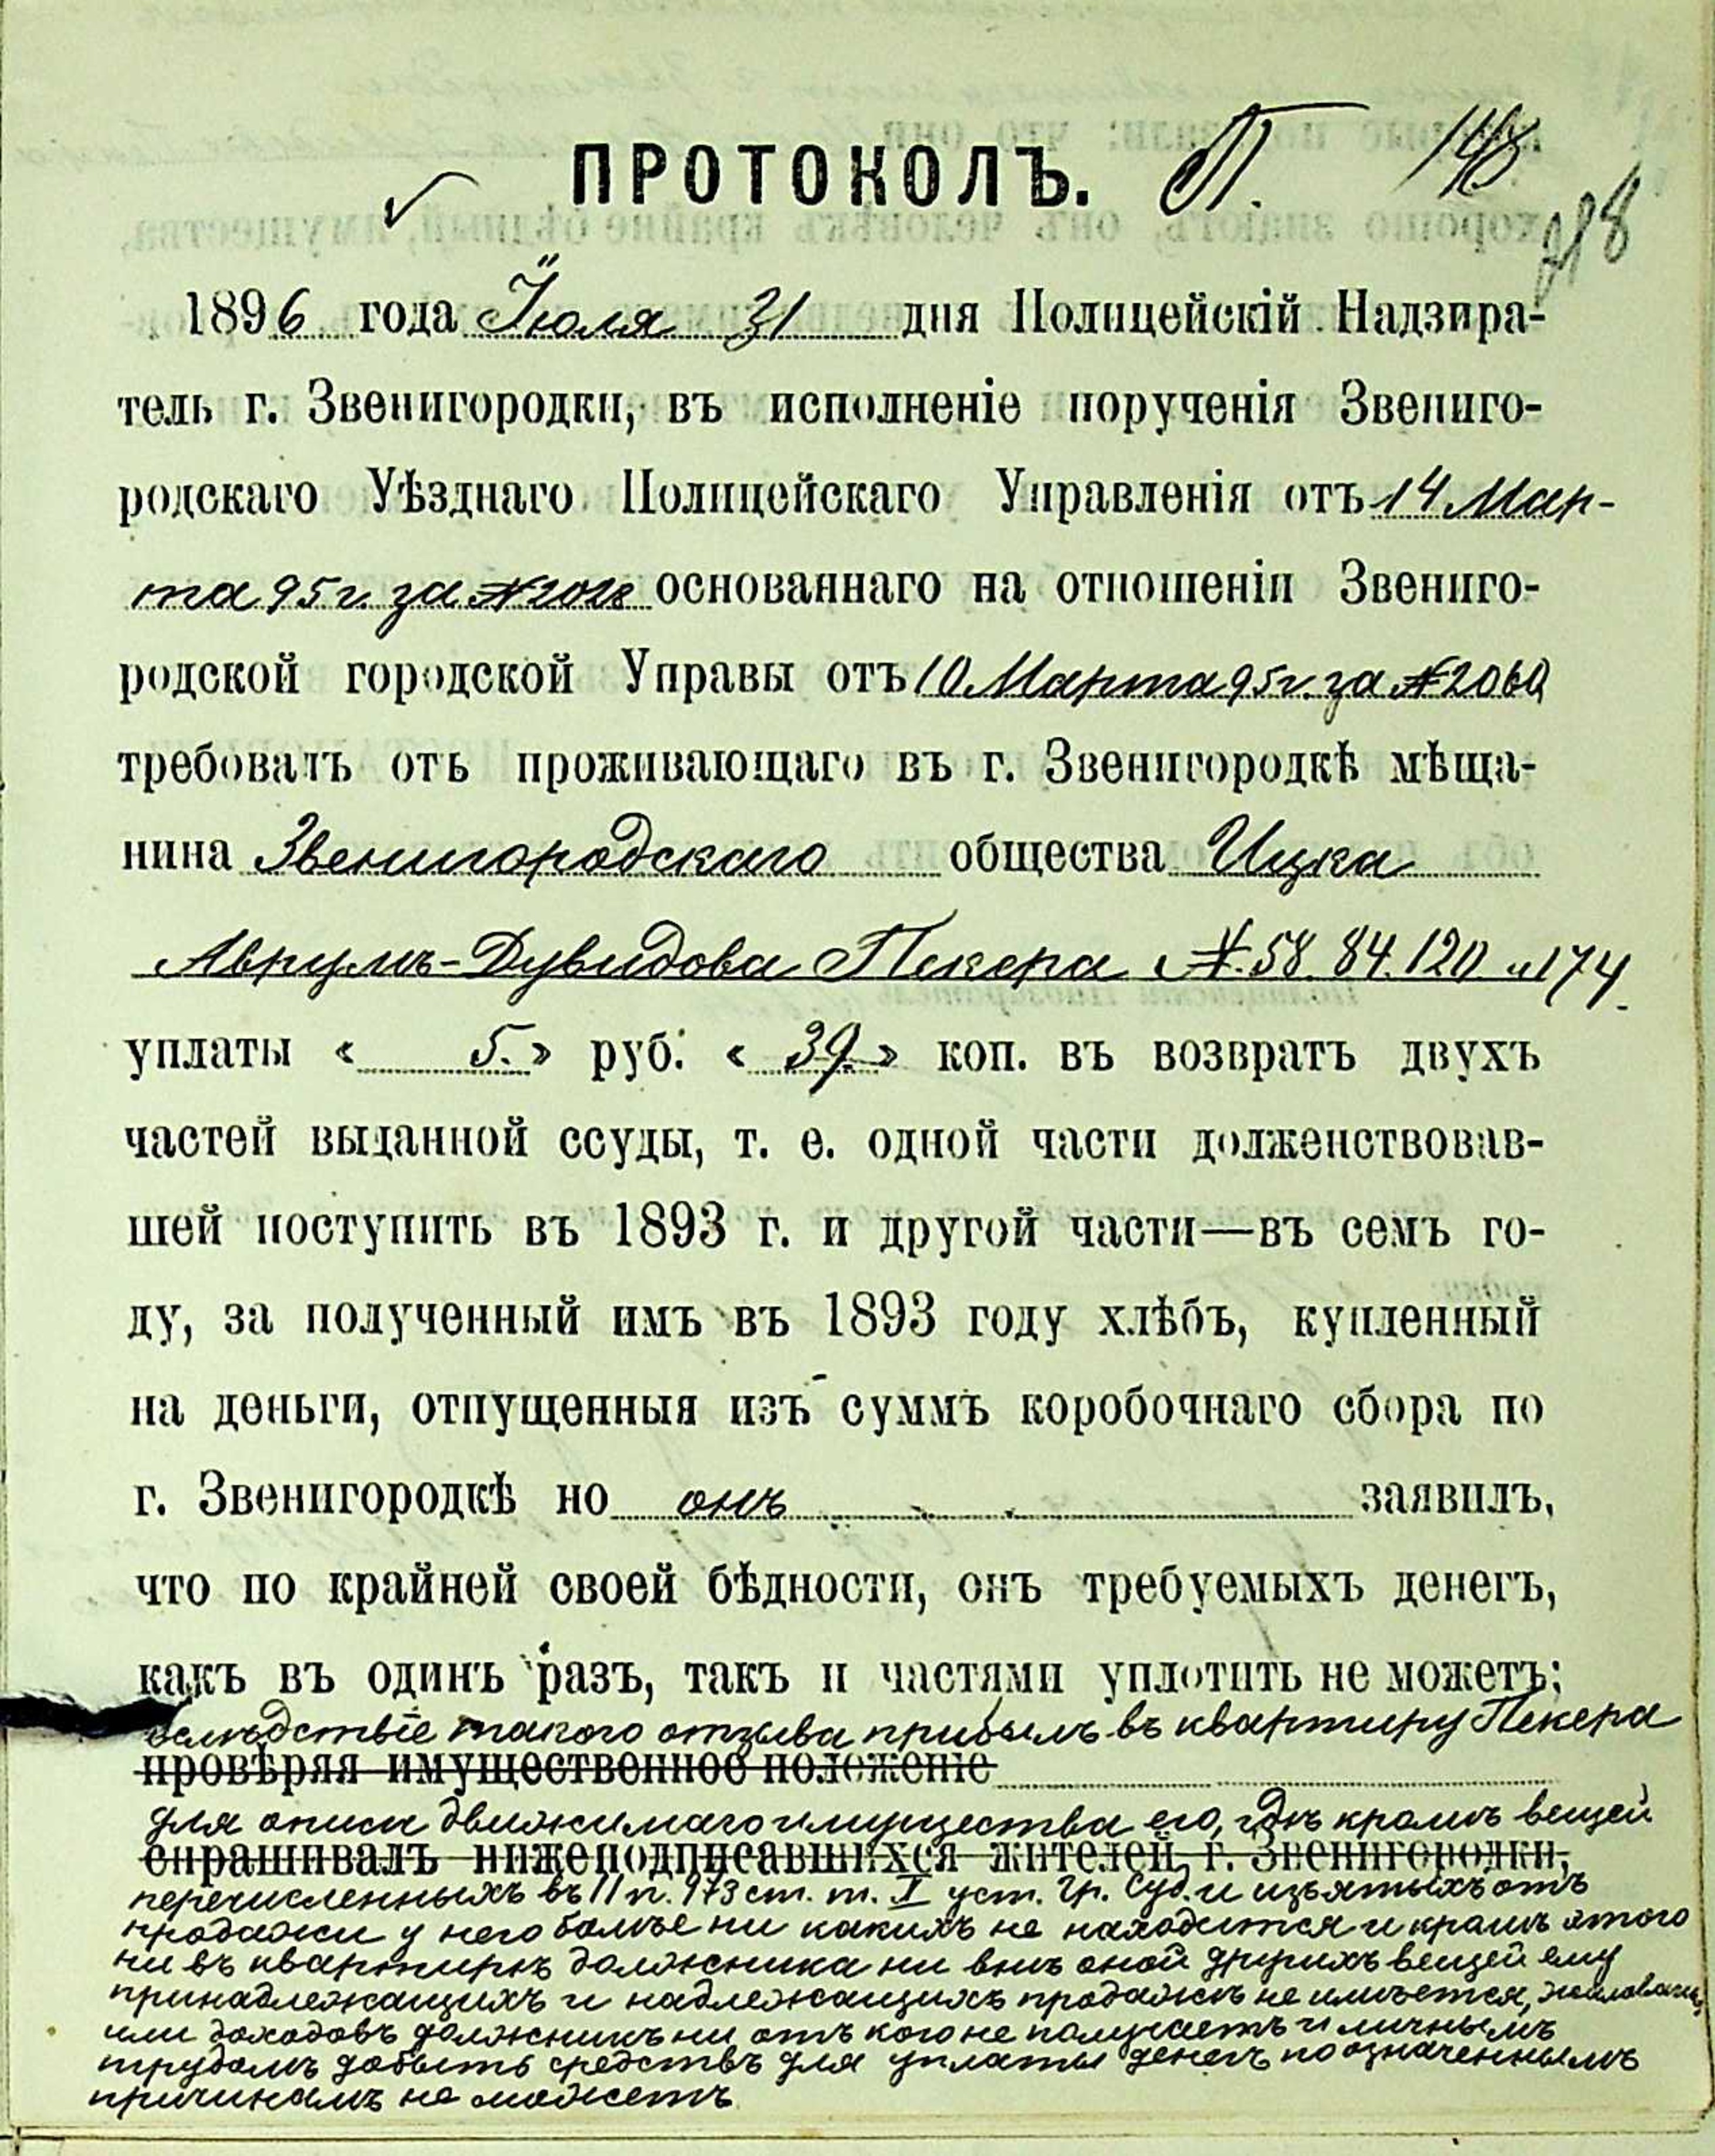 ПРОТОКОЛЪ. П. 148
218
1896 года Іюля 31 дня Полицейскій Надзира-
тель г. Звенигородки, въ исполненіе порученія Звениго-
родскаго Уѣзднаго Полицейскаго Управленія отъ 14 Мар-
та 95 г. за № основаннаго на отношеніи Звениго-
родской городской Управы отъ 10 Марта 95 г. за № 2060
требовалъ отъ проживающаго въ г. Звенигородкѣ мѣща-
нина Звенигородскаго общества Ицка
Аврумъ-Дувидова Пекера №. 58 84. 120 и 174
уплаты « 5. » руб. « 39. » коп. въ возвратъ двухъ
частей выданной ссуды, т. е. одной части долженствовав-
шей поступить въ 1893 г. и другой части—въ семъ го-
ду, за полученный имъ въ 1893 году хлѣбъ, купленный
на деньги, отпущенныя изъ суммъ коробочнаго сбора по
г. Звенигородкѣ но онъ заявилъ,
что по крайней своей бѣдности, онъ требуемыхъ денегъ,
какъ въ одинъ разъ, такъ и частями уплотить не можетъ;
вслѣдствіе такого отзыва прибылъ въ квартиру Пекера
провѣряя имущественное положеніе
для описи движимаго имущества его, гдѣ кромѣ вещей
спрашивалъ нижеподписавшихся жителей, г. Звенигородки,
перечисленныхъ въ 11 п. 973 ст. т. X уст. Гр. Суд. и изъятыхъ отъ
продажи у него болѣе ни какихъ не находится и кромѣ этого
ни въ квартирѣ должника ни внѣ оной другихъ вещей ему
принадлежащихъ и надлежащихъ продажѣ не имѣется, жалованья,
или доходовъ должникъ ни отъ кого не получаетъ и личнымъ
трудомъ добыть средствъ для уплаты денегъ по означеннымъ
причинамъ не можетъ